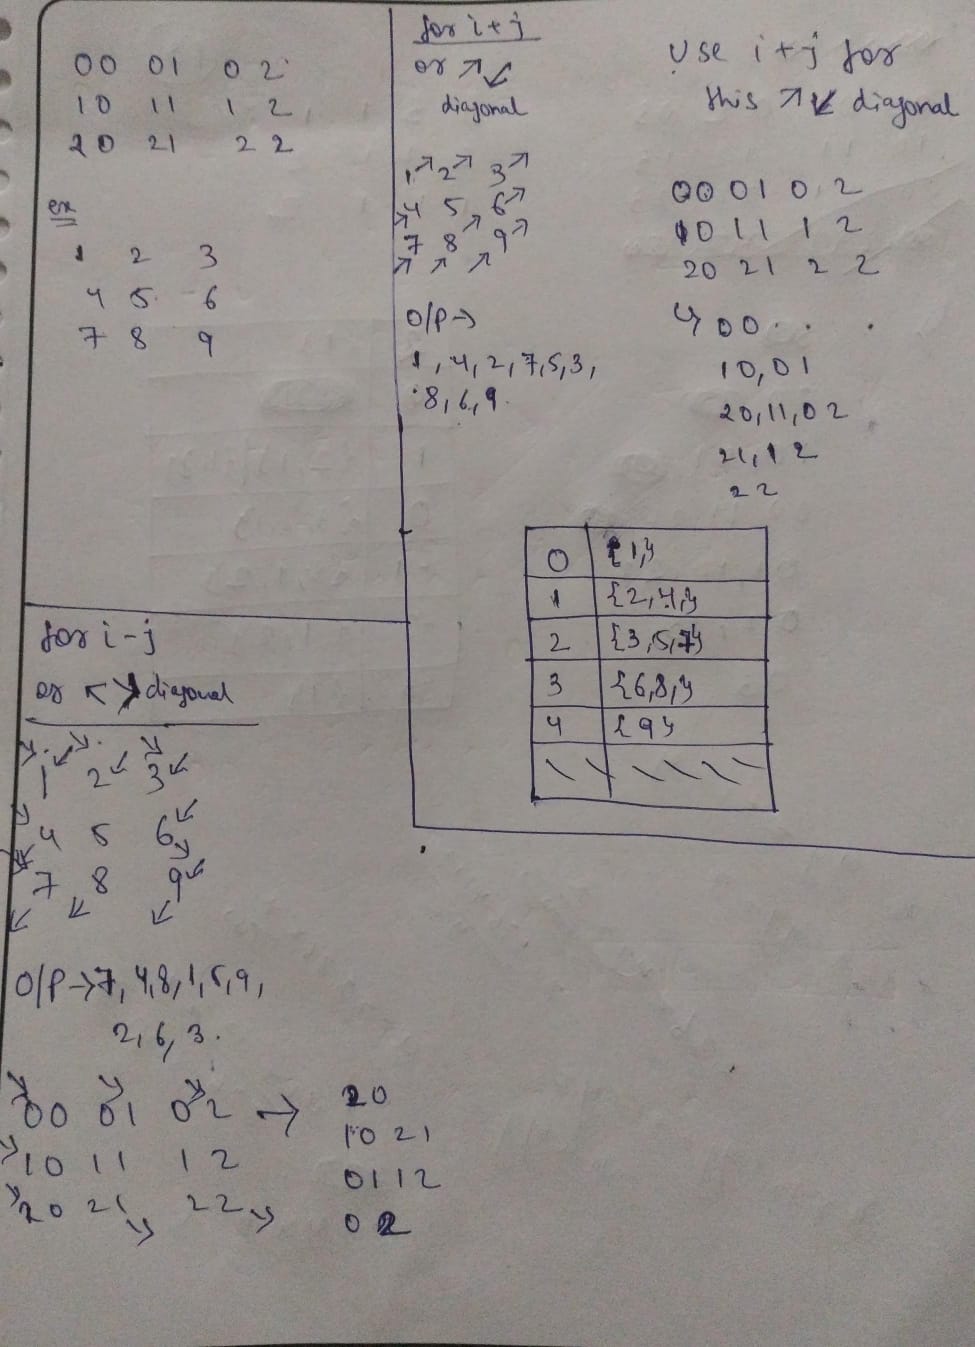 00 01 02
10 11 12
20 21 22
ex
1 2 3
4 5 6
7 8 9
for i+j
or ↗↙
diagonal
1 2 3
4 5 6
7 8 9
O/P →
1, 4, 2, 7, 5, 3,
8, 6, 9.
Use i+j for
this ↗↙ diagonal
00 01 02
10 11 12
20 21 22
↳ 00
10, 01
20, 11, 02
21, 12
22
0 {1,}
1 {2,4,}
2 {3,5,7}
3 {6,8,}
4 {9}
for i-j
or ↖↘ diagonal
1 2 3
4 5 6
7 8 9
O/P → 7, 4, 8, 1, 5, 9,
2, 6, 3.
00 01 02 → 20
10 11 12 10 21
20 21 22 01 12
02